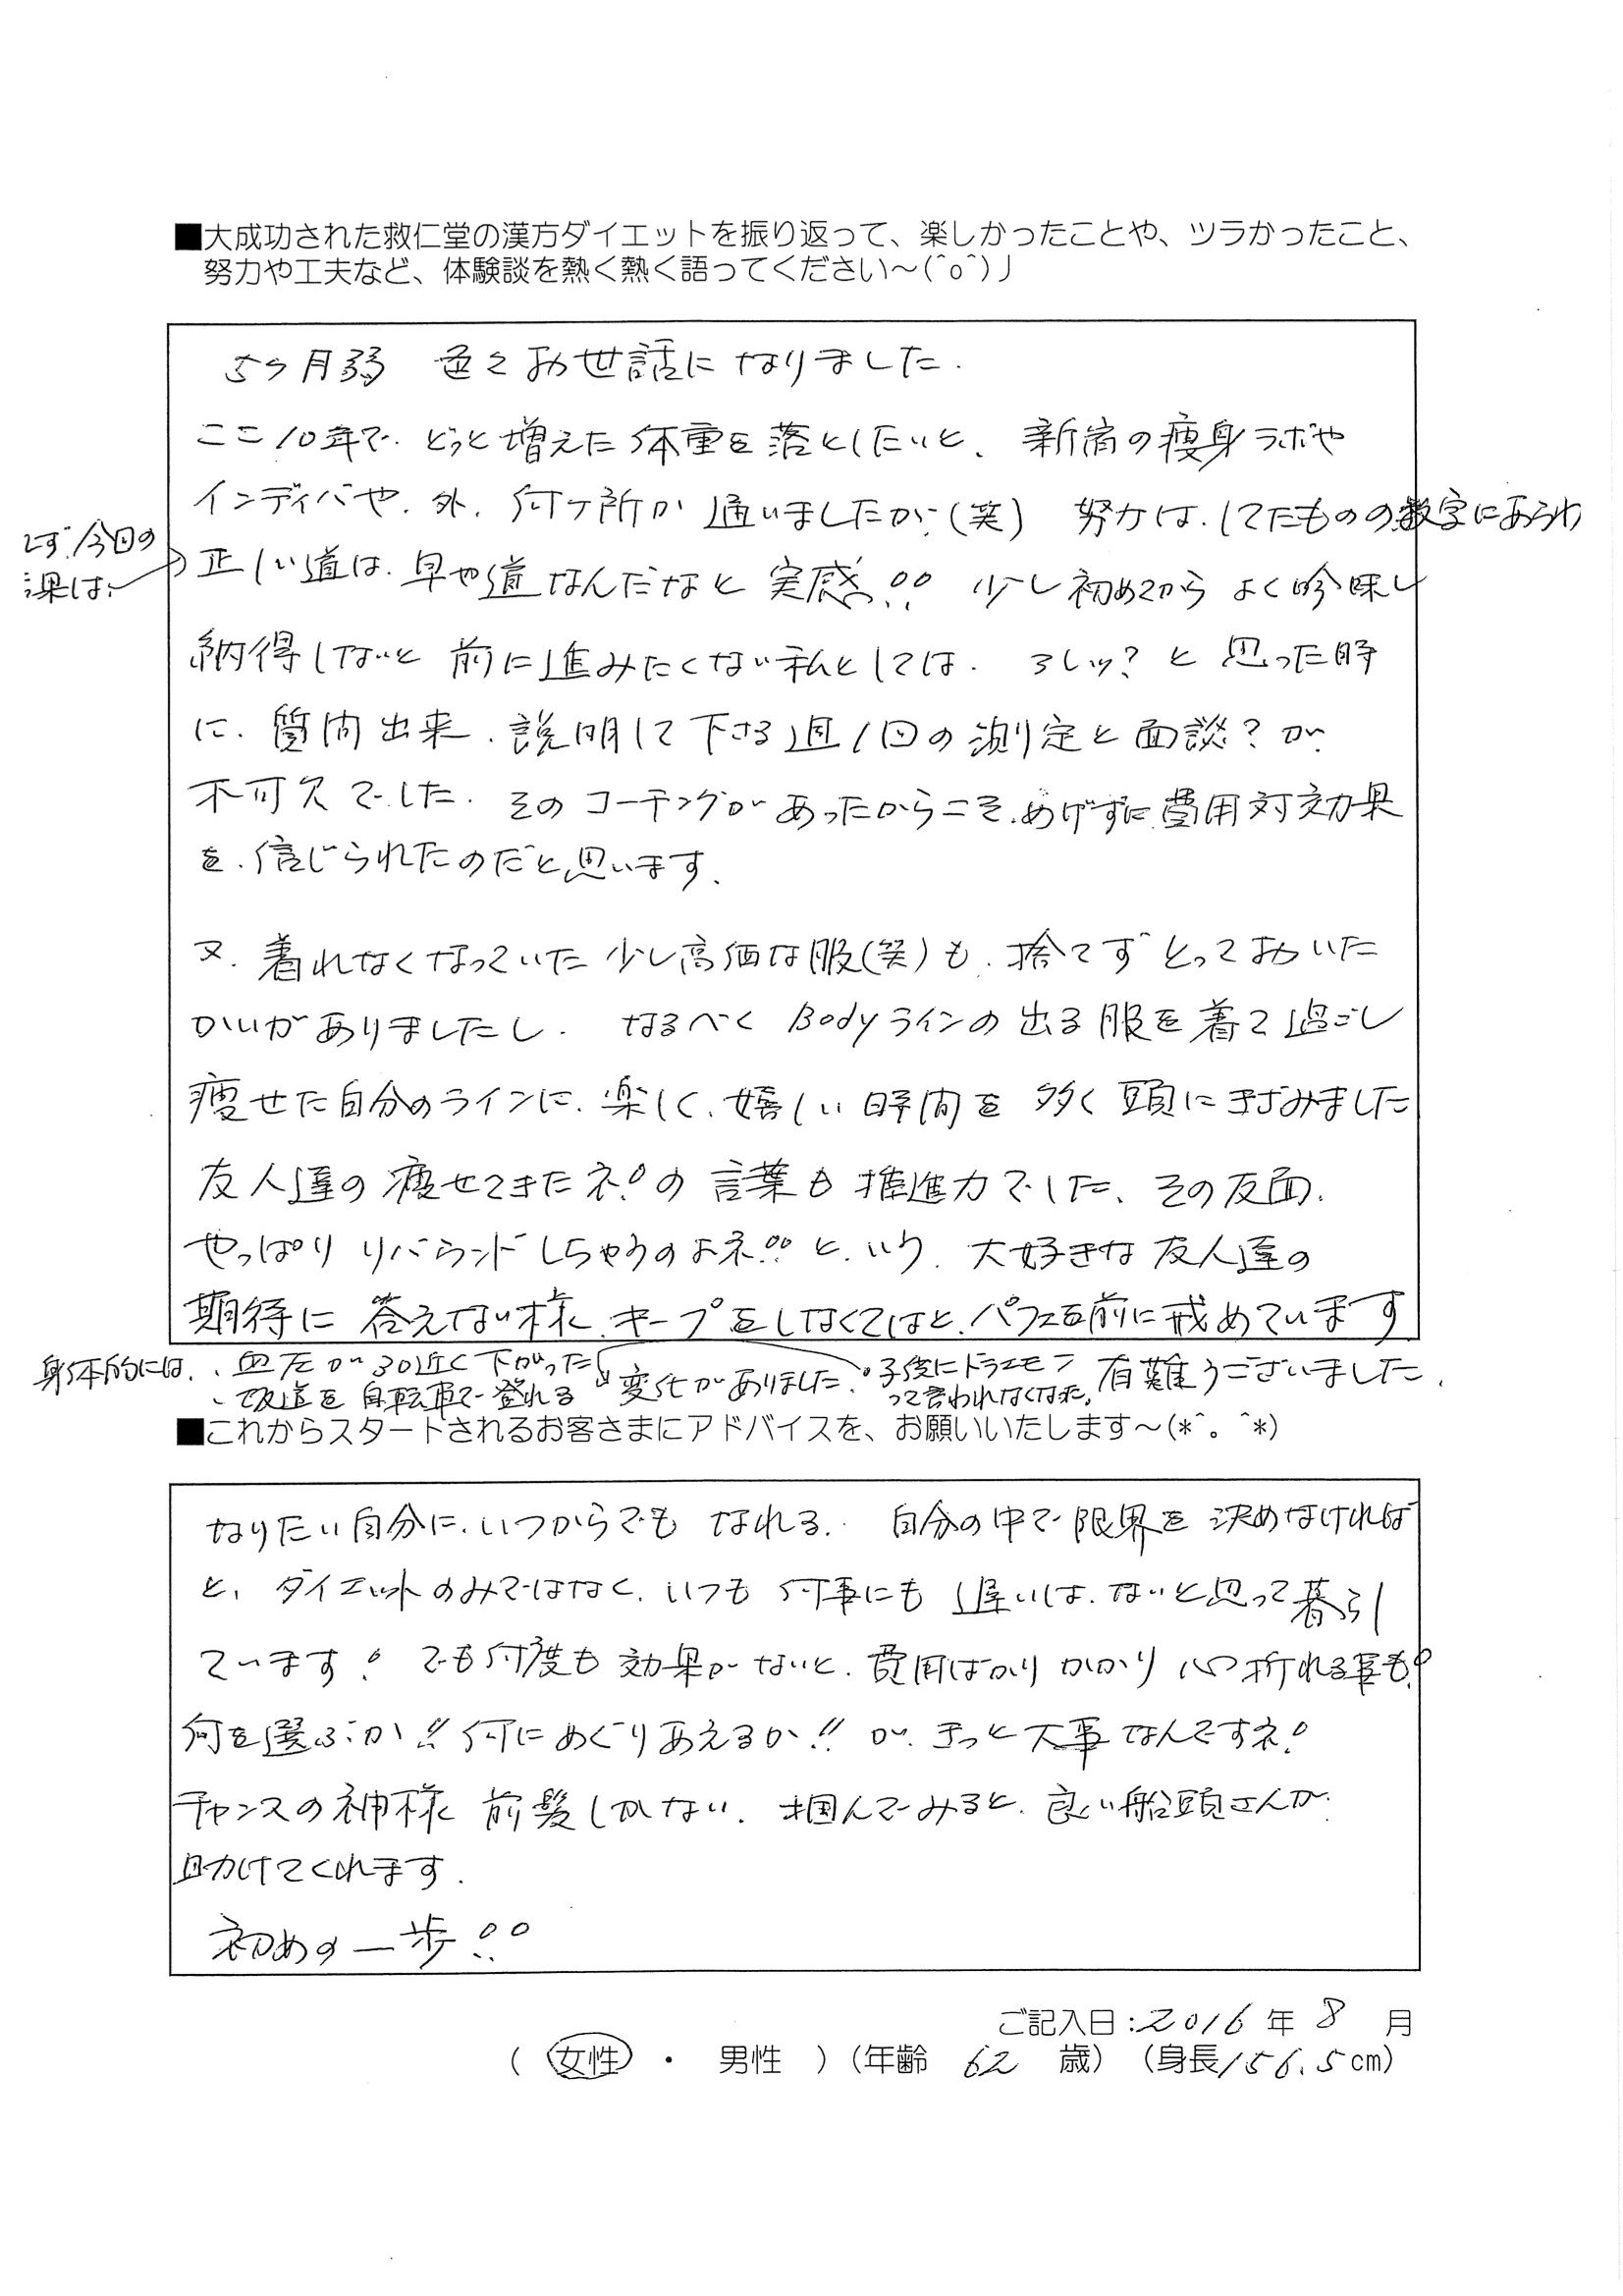 ■大成功された救仁堂の漢方ダイエットを振り返って、楽しかったことや、ツラかったこと、
努力や工夫など、体験談を熱く熱く語ってください～(^o^)丿
5ヶ月弱 色々お世話になりました.
ここ10年で、どっと増えた体重を落としたいと、新宿の痩身ラボや
インディバや、外、何ヶ所か通いましたが、(笑) 努力は、してたものの数字にあらわ
れず、今回の
結果は、
正しい道は、早や道なんだなと実感!! 少し初めてから よく吟味し
納得しないと 前に進みたくない私としては、 ? と思った時
に、質問出来、説明して下さる週1回の測定と面談?が、
不可欠でした. そのコーチングがあったからこそ、めげずに費用対効果
を、信じられたのだと思います.
又、着れなくなっていた少し高価な服(笑)も、捨てずとっておいた
かいがありましたし、 なるべく Bodyラインの出る服を着て過ごし
痩せた自分のラインに、楽しく、嬉しい時間を 多く頭にきざみました
友人達の痩せてきたネ!の言葉も推進力でした、その反面、
やっぱり リバウンドしちゃうのよネ!! と、いう、大好きな友人達の
期待に 答えない様、キープをしなくてはと、パフェを前に戒めています
身体的には、・血圧が30近く下がった
・坂道を自転車で登れる
変化がありました、
・子供にドラエモン
って言われなくなった、
有難うございました.
■これからスタートされるお客さまにアドバイスを、お願いいたします～(*^。^*)
なりたい自分に、いつからでも なれる、 自分の中で限界を 決めなければ
と、ダイエットのみではなく、いつも 何事にも 遅いは、ないと思って暮らし
ています! でも何度も 効果がないと、費用ばかり かかり 心折れる事も!
何を選ぶか!! 何にめぐりあえるか!! が、きっと大事なんですネ!
チャンスの神様 前髪しかない、掴んでみると、良い船頭さんが、
助けてくれます.
初めの一歩!!
ご記入日:2016年 8 月
( 女性 ・ 男性 )(年齢 62 歳) (身長156.5cm)